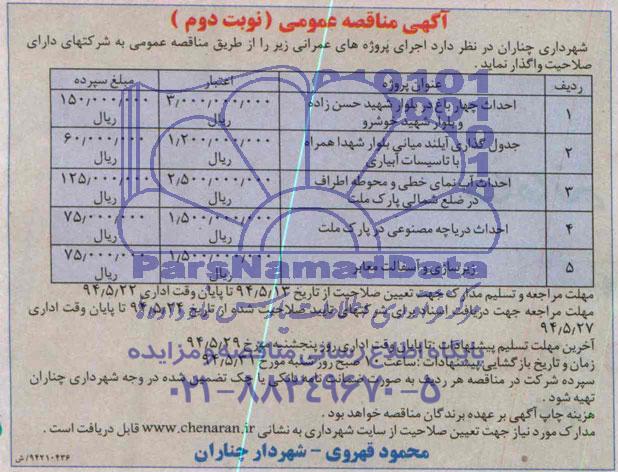 آگهی مناقصه عمومی ( نوبت دوم )
شهرداری چناران در نظر دارد اجرای پروژه های عمرانی زیر را از طریق مناقصه عمومی به شرکتهای دارای
صلاحیت واگذار نماید .
ردیف عنوان پروژه اعتبار مبلغ سپرده
۱ احداث چهار باغ در بلوار شهید حسن زاده ۳٫۰۰۰٫۰۰۰٫۰۰۰ ۱۵۰٫۰۰۰٫۰۰۰
و بلوار شهید خوشرو ریال ریال
۲ جدول گذاری آیلند میانی بلوار شهدا همراه ۱٫۲۰۰٫۰۰۰٫۰۰۰ ۶۰٫۰۰۰٫۰۰۰
با تاسیسات آبیاری ریال ریال
۳ احداث آب نمای خطی و محوطه اطراف ۲٫۵۰۰٫۰۰۰٫۰۰۰ ۱۲۵٫۰۰۰٫۰۰۰
در ضلع شمالی پارک ملت ریال ریال
۴ احداث دریاچه مصنوعی در پارک ملت ۱٫۵۰۰٫۰۰۰٫۰۰۰ ۷۵٫۰۰۰٫۰۰۰
ریال ریال
۵ زیرسازی و آسفالت معابر ۱٫۵۰۰٫۰۰۰٫۰۰۰ ۷۵٫۰۰۰٫۰۰۰
ریال ریال
ParsNamadData
مهلت مراجعه و تسلیم مدارک جهت تعیین صلاحیت از تاریخ ۹۴٫۵٫۱۳ تا پایان وقت اداری ۹۴٫۵٫۲۲
مهلت مراجعه جهت دریافت اسناد برای شرکتهای تایید صلاحیت شده از تاریخ ۹۴٫۵٫۲۴ تا پایان وقت اداری
۹۴٫۵٫۲۷
آخرین مهلت تسلیم پیشنهادات : تا پایان وقت اداری روز پنجشنبه مورخ ۹۴٫۵٫۲۹
زمان و تاریخ بازگشایی پیشنهادات : ساعت صبح روز شنبه مورخ ۹۴٫۵٫۳۱
پایگاه اطلاع رسانی مناقصه و مزایده
سپرده شرکت در مناقصه هر ردیف به صورت ضمانت نامه بانکی یا چک تضمین شده در وجه شهرداری چناران
تهیه شود .
۰۲۱-۸۸۳۴۹۶۷۰-۵
هزینه چاپ آگهی بر عهده برندگان مناقصه خواهد بود .
مدارک مورد نیاز جهت تعیین صلاحیت از سایت شهرداری به نشانی www.chenaran.ir قابل دریافت است .
محمود قهروی - شهردار چناران
۹۴۲۱۰۴۳۶/ش